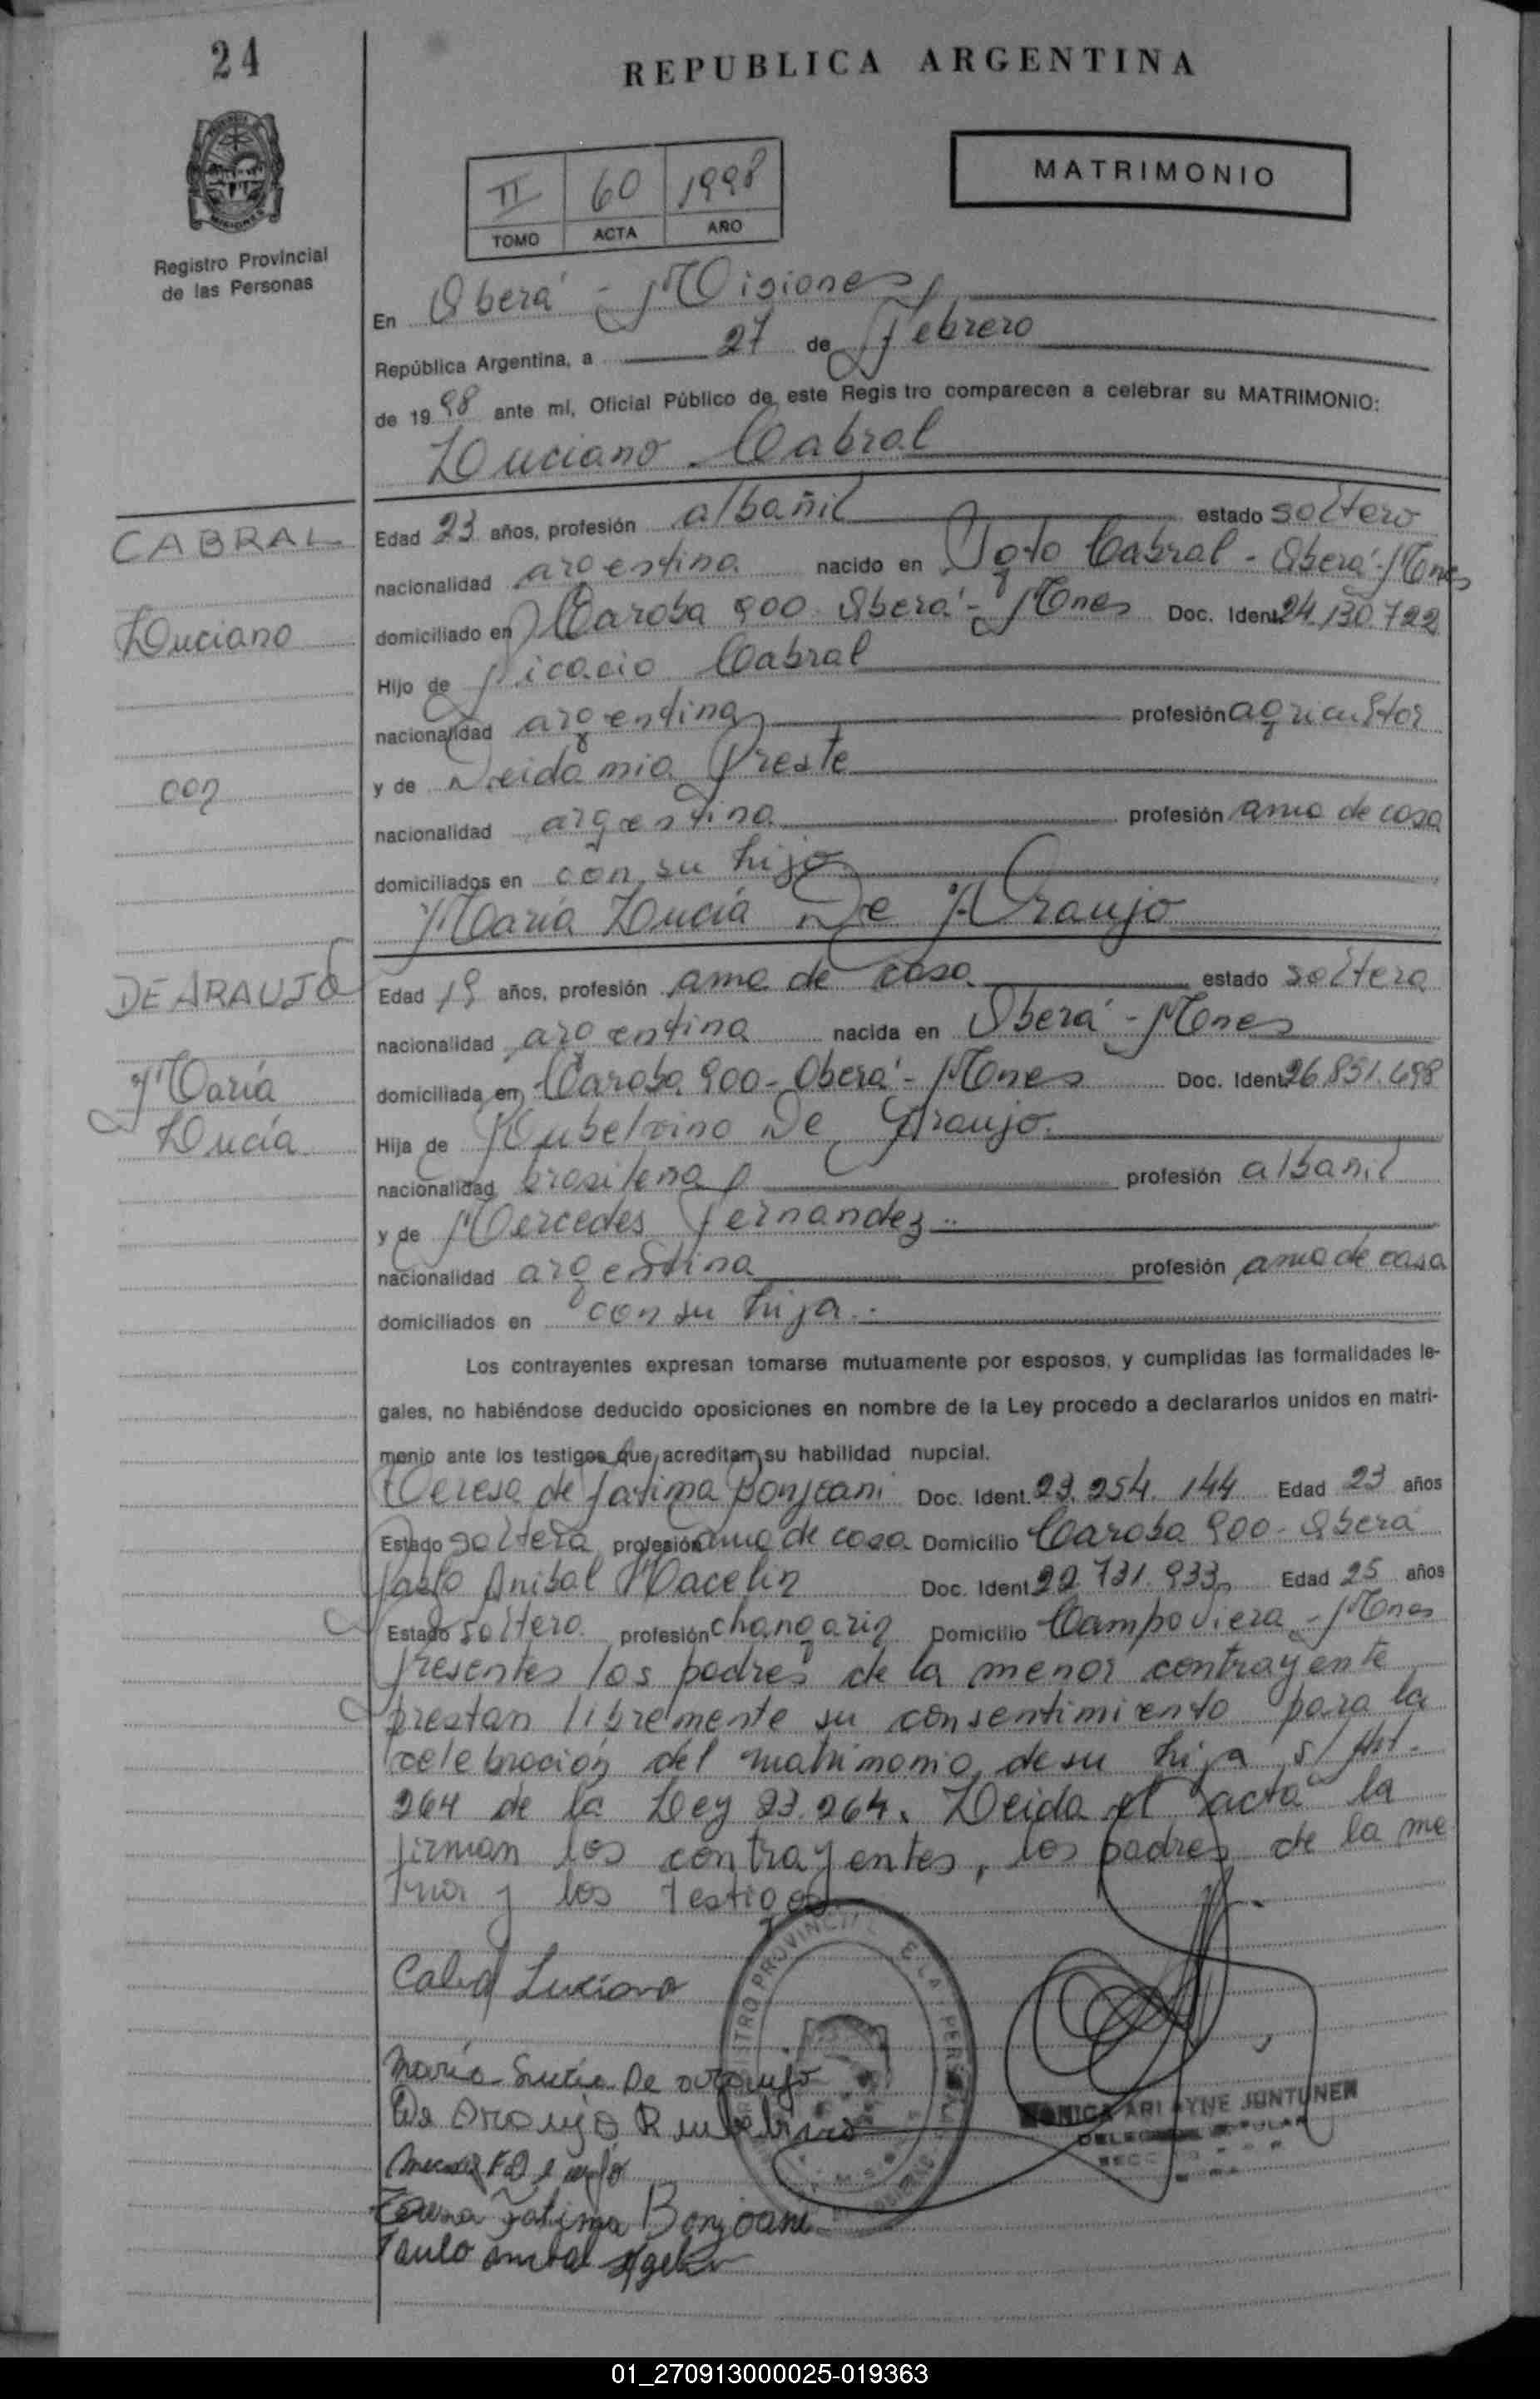 24
REPUBLICA ARGENTINA
MATRIMONIO
II 60 1998
TOMO ACTA AÑO
Registro Provincial
de las Personas
En Oberá - Misiones
República Argentina, a 27 de Febrero
de 1998 ante mí, Oficial Público de este Registro comparecen a celebrar su MATRIMONIO:
Luciano Cabral
CABRAL
Luciano
con
Edad 23 años, profesión albañil estado soltero
nacionalidad argentina nacido en Cabral - Oberá - Mnes
domiciliado en Caroba 900 Oberá - Mnes Doc. Ident. 24.130.722
Hijo de Cabral
nacionalidad argentina profesión agricultor
y de Preste
nacionalidad argentina profesión ama de casa
domiciliados en con su hijo
María Lucía De Araujo
DE ARAUJO
María
Lucía
Edad 19 años, profesión ama de casa estado soltera
nacionalidad argentina nacida en Oberá - Mnes
domiciliada en Caroba 900 - Oberá - Mnes Doc. Ident. 26.851.698
Hija de Rubelvino De Araujo
nacionalidad brasileña profesión albañil
y de Mercedes Fernandez
nacionalidad argentina profesión ama de casa
domiciliados en con su hija
Los contrayentes expresan tomarse mutuamente por esposos, y cumplidas las formalidades le-
gales, no habiéndose deducido oposiciones en nombre de la Ley procedo a declararlos unidos en matri-
monio ante los testigos que acreditam su habilidad nupcial.
Teresa de Fatima Bonjeani Doc. Ident. 23.254.144 Edad 23 años
Estado soltera profesión ama de casa Domicilio Caroba 900 - Oberá
Anibal Doc. Ident. 22.731.933 Edad 25 años
Estado soltero profesión changarin Domicilio Campo Viera - Mnes
Presentes los padres de la menor contrayente
prestan libremente su consentimiento para la
celebración del matrimonio de su hija s/ Art.
264 de la Ley 23.264. Leida el acta la
firman los contrayentes, los padres de la me
nor y los testigos
Cabral Luciano
María Lucia De araujo
De Araujo Rubelvino
Teresa Fatima Bonjoani
Paulo anibal
JUNTUNEN
01_270913000025-019363